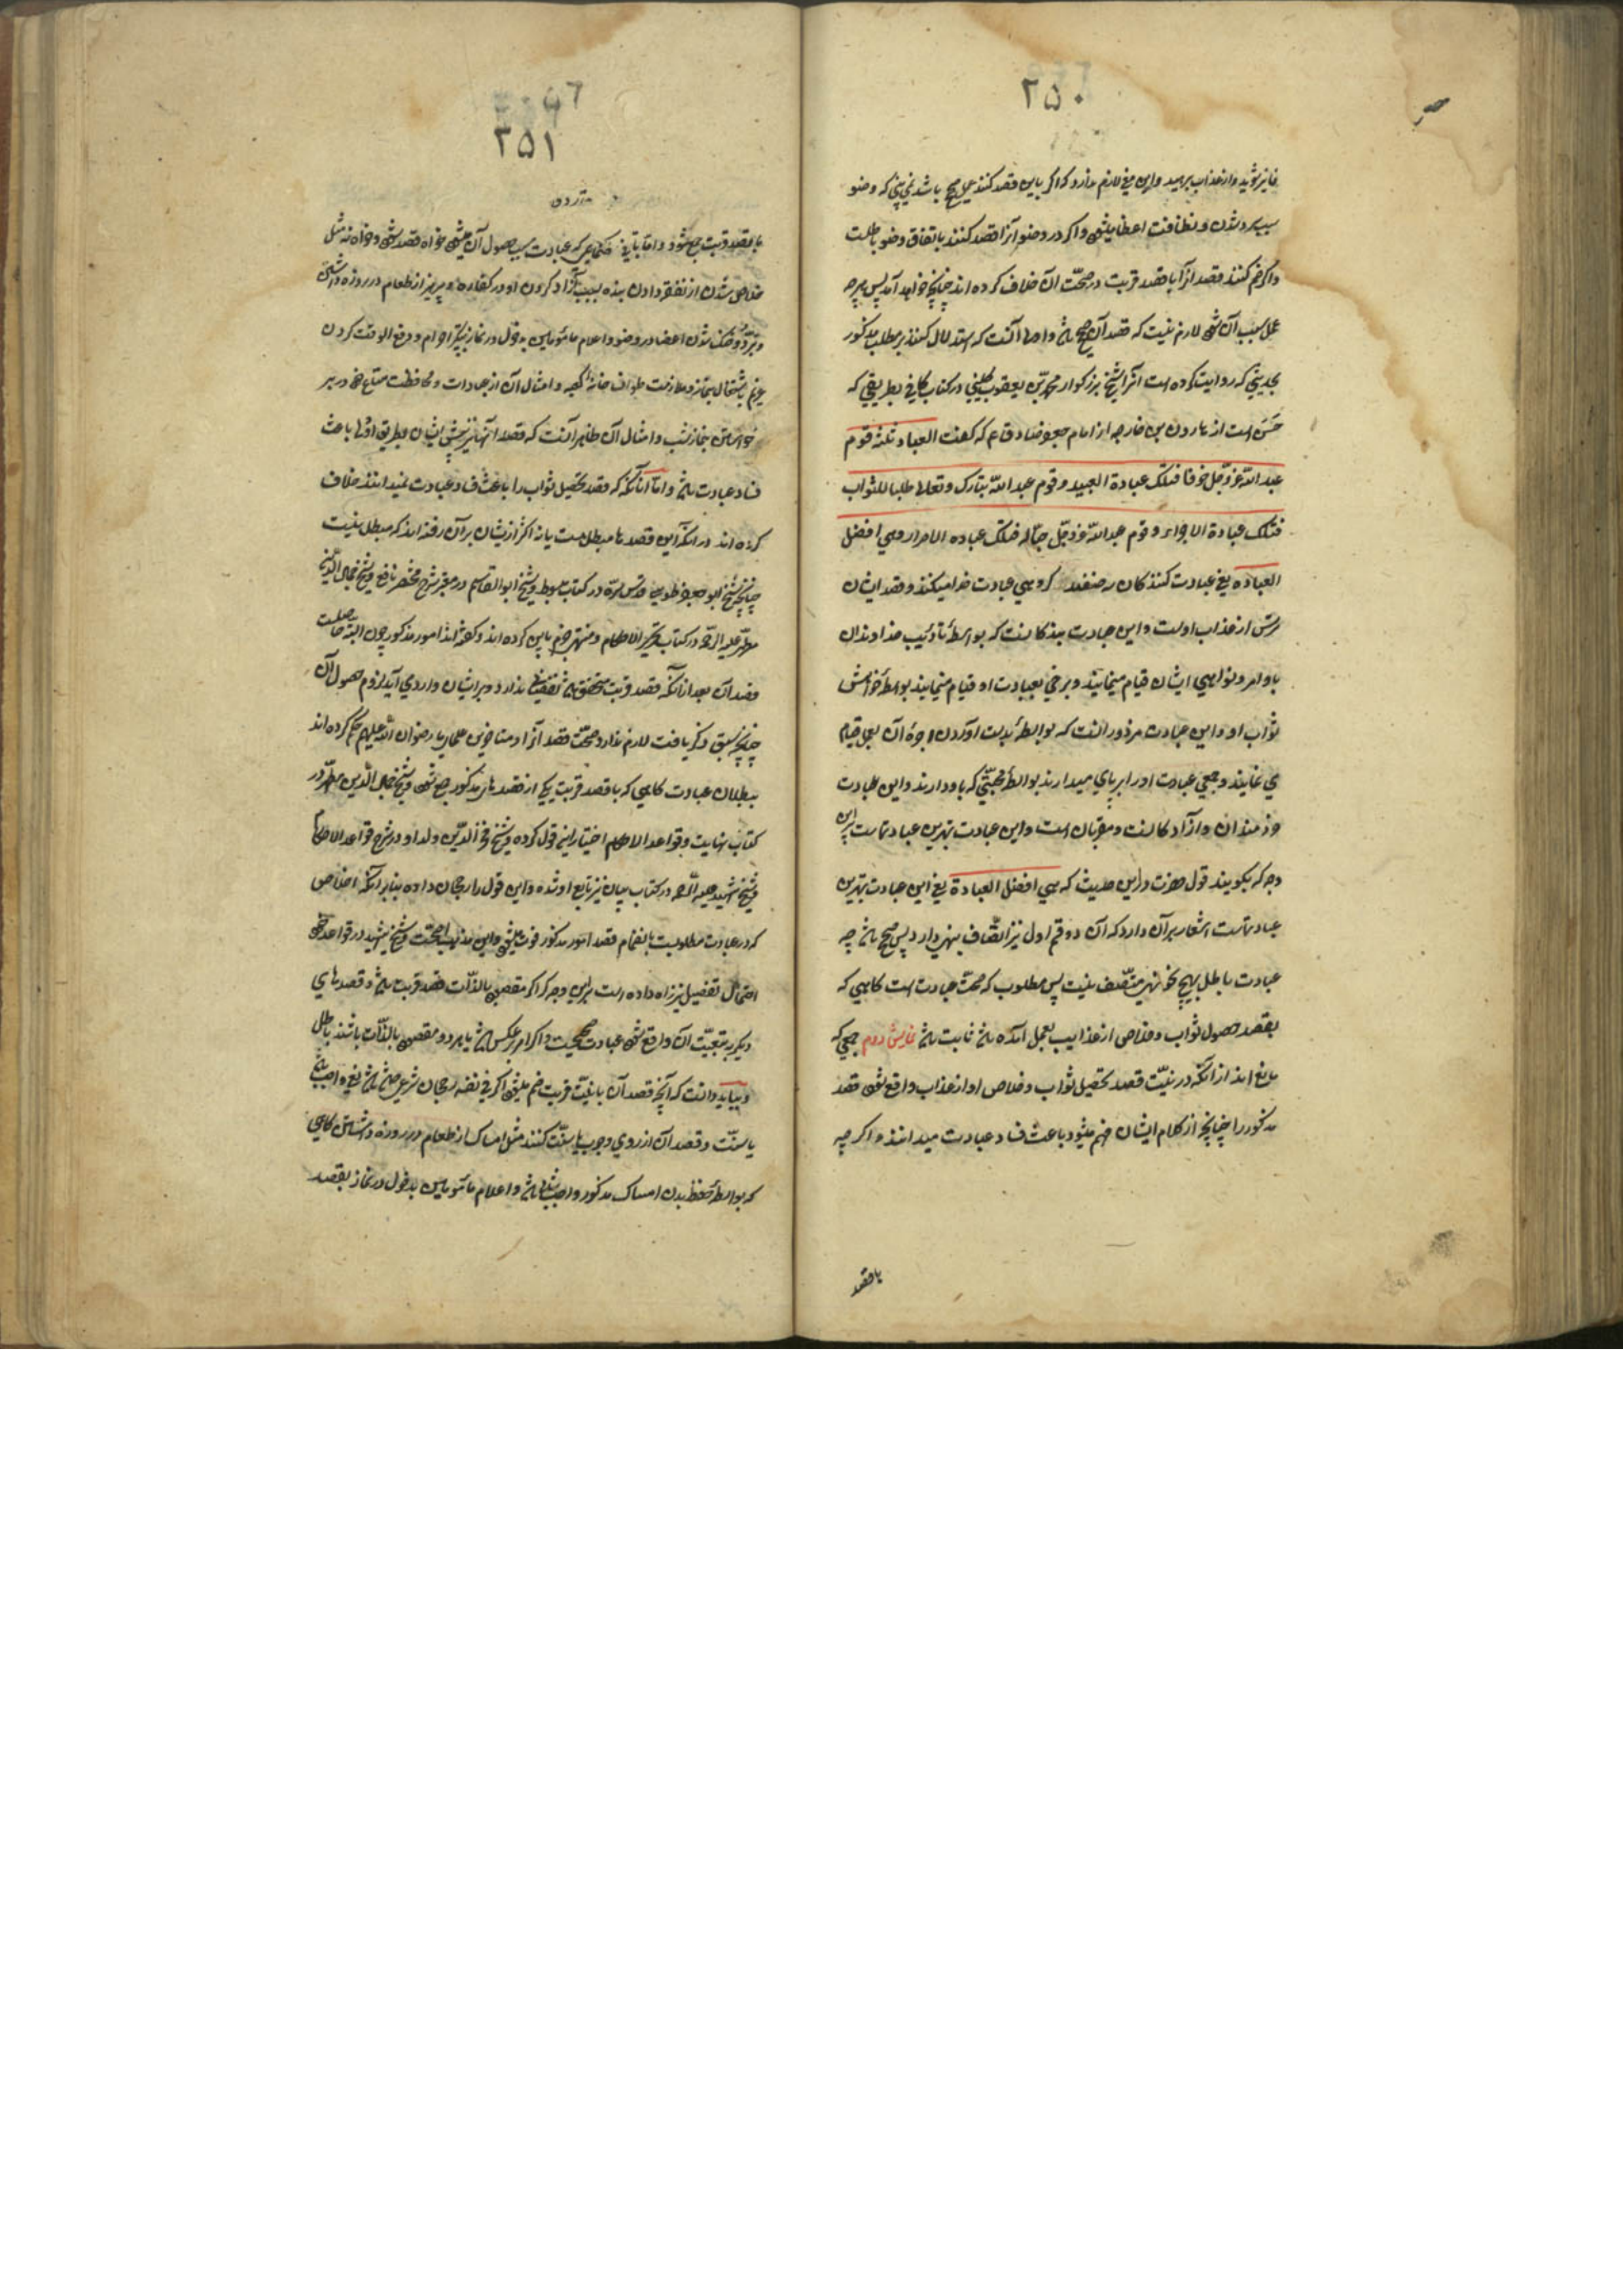 ۲۵۰
فایز شوید و از عذاب برهید و این معنی لازم ندارد که اگر باین قصد کنند عمل صحیح باشد نمی بینی که وضو
سبب سرد شدن و نظافت اعضا میشود و اگر در وضو آنرا قصد کنند باتفاق وضو باطلست
و اگر ضم کنند قصد آنرا با قصد قربت در صحّت آن خلاف کرده اند چنانچه خواهد آمد پس هر چه
عمل سبب آن شود لازم نیست که قصد آن صحیح باشد و اصل آنست که استدلال کنند بر مطلب مذکور
بحدیثی که روایت کرده است آنرا شیخ بزرگوار محمّد بن یعقوب کلینی در کتاب کافی بطریقی که
حَسَن است از هارون بن خارجه از امام جعفر صادق ع م که گفت العباد ثلثه قوم
عبد الله عزّ وجلّ خوفا فتلک عبادة العبید و قوم عبد الله تبارک و تعالی طلبا للثواب
فتلک عبادة الاجراء و قوم عبد الله عزّ وجلّ حبّا له فتلک عباده الاحرار وهی افضل
العبادة یعنی عبادت کنندکان سه صنفند گروهی عبادت خدا میکنند و قصد ایشان
ترس از عذاب اوست و این عبادت بندکانست که بواسطهٔ تأدیب خداوندان
باوامر و نواهی ایشان قیام مینمایند و برخی بعبادت او قیام مینمایند بواسطهٔ خواهش
ثواب او و این عبادت مزدورانست که بواسطهٔ بدست آوردن اجرهٔ آن بعمل قیام
می نمایند و جمعی عبادت او را بر پای میدارند بواسطهٔ محبّتی که باو دارند و این عبادت
خردمندان و آزادکانست و مقرّبان است و این عبادت بهترین عبادتهاست براین
وجه که بگویند قول حضرت در این حدیث که هی افضل العبادة یعنی این عبادت بهترین
عبادتهاست اشعار بر آن دارد که آن دو قسم اول نیز اتّصاف ببهی دارد پس صحیح باشد چه
عبادت باطل بهیچ نحو ببهی متّصف نیست پس مطلوب که صحّت عبادت است گاهی که
بقصد حصول ثواب و خلاص از عذاب بعمل آمده باشد ثابت باشد نمایش دوم جمعی که
مانع اند از آنکه در نیّت قصد تحصیل ثواب و خلاص او از عذاب واقع شود قصد
مذکور را چنانچه از کلام ایشان فهم میشود باعث فساد عبادت میدانند و اگر چه
با قصد
۲۵۱
با قصد قربت جمع شود و امّا باقی ضمائمی که عبادت سبب حصول آن میشود خواه قصد شود و خواه نه مثل
خلاص شدن از نفقه دادن بنده بسبب آزاد کردن او در کفاره و پرهیز از طعام در روزه داشتن
و تبرّد و خنک شدن اعضا در وضو و اعلام مأمومین به دخول در نماز بتکبیر احرام و دفع الوقت کردن
غریم باشتغال بنماز و ملازمت طواف خانهٔ کعبه و امثال آن از عبادات و محافظت متاع خود در بر
خواستن بنماز شب و امثال آن ظاهر آنست که قصد آنها نیز پیش ایشان بطریق اولی باعث
فساد عبادت باشد و امّا آنانکه که قصد تحصیل ثواب را باعث فساد عبادت نمیدانند خلاف
کرده اند در آنکه این قصدها مبطل هست یا نه اکثر از ایشان بر آن رفته اند که مبطل نیست
چنانچه شیخ ابو جعفر طوسی قدّس سرّه در کتاب مبسوط و شیخ ابو القاسم در معتبر شرح مختصر نافع و شیخ جمال الدّین
مطهّر علیه الرّحمه در کتاب تحریر الاحکام و منتهی جزم باین کرده اند و گفته اند امور مذکور چون البته حاصلست
قصد آن بعد از آنکه قصد قربت متحقّق باشد نقصانی ندارد و بر ایشان وارد می آید لزوم حصول آن
چنانچه سبق ذکر یافت لازم ندارد صحّت قصد آنرا و متاخّرین علماء ما رضوان الله علیهم حکم کرده اند
ببطلان عبادت گاهی که با قصد قربت یکی از قصدهای مذکور جمع شود و شیخ جمال الدّین مطهّر در
کتاب نهایت و قواعد الاحکام اختیار این قول کرده و شیخ فخر الدّین ولد او در شرح قواعد الاحکام
و شیخ شهید علیه الرّحمه در کتاب بیان نیز تابع او شده و این قول را رجحان داده بنابر آنکه اخلاص
که در عبادت مطلوبست بانضمام قصد امور مذکور فوت میشود و این مذهب اصحّست و شیخ شهید در قواعد خود
احتمال تفصیل نیز راه داده است براین وجه که اگر مقصود بالذّات قصد قربت باشد و قصدهای
دیگر به تبعیّت آن واقع شود عبادت صحیحست و اگر امر بر عکس باشد یا هر دو مقصود بالذّات باشند باطل
و بباید دانست که آنچه قصد آن با نیّت قربت ضم میشود اگر فی نفسه رجحان شرعی داشته باشد یعنی واجب باشد
یا سنّت و قصد آن از روی وجوب یا سنّت کنند مثل امساک از طعام در روزه داشتن گاهی
که بواسطهٔ حفظ بدن امساک مذکور واجب شده باشد و اعلام مأمومین بدخول در نماز بقصد